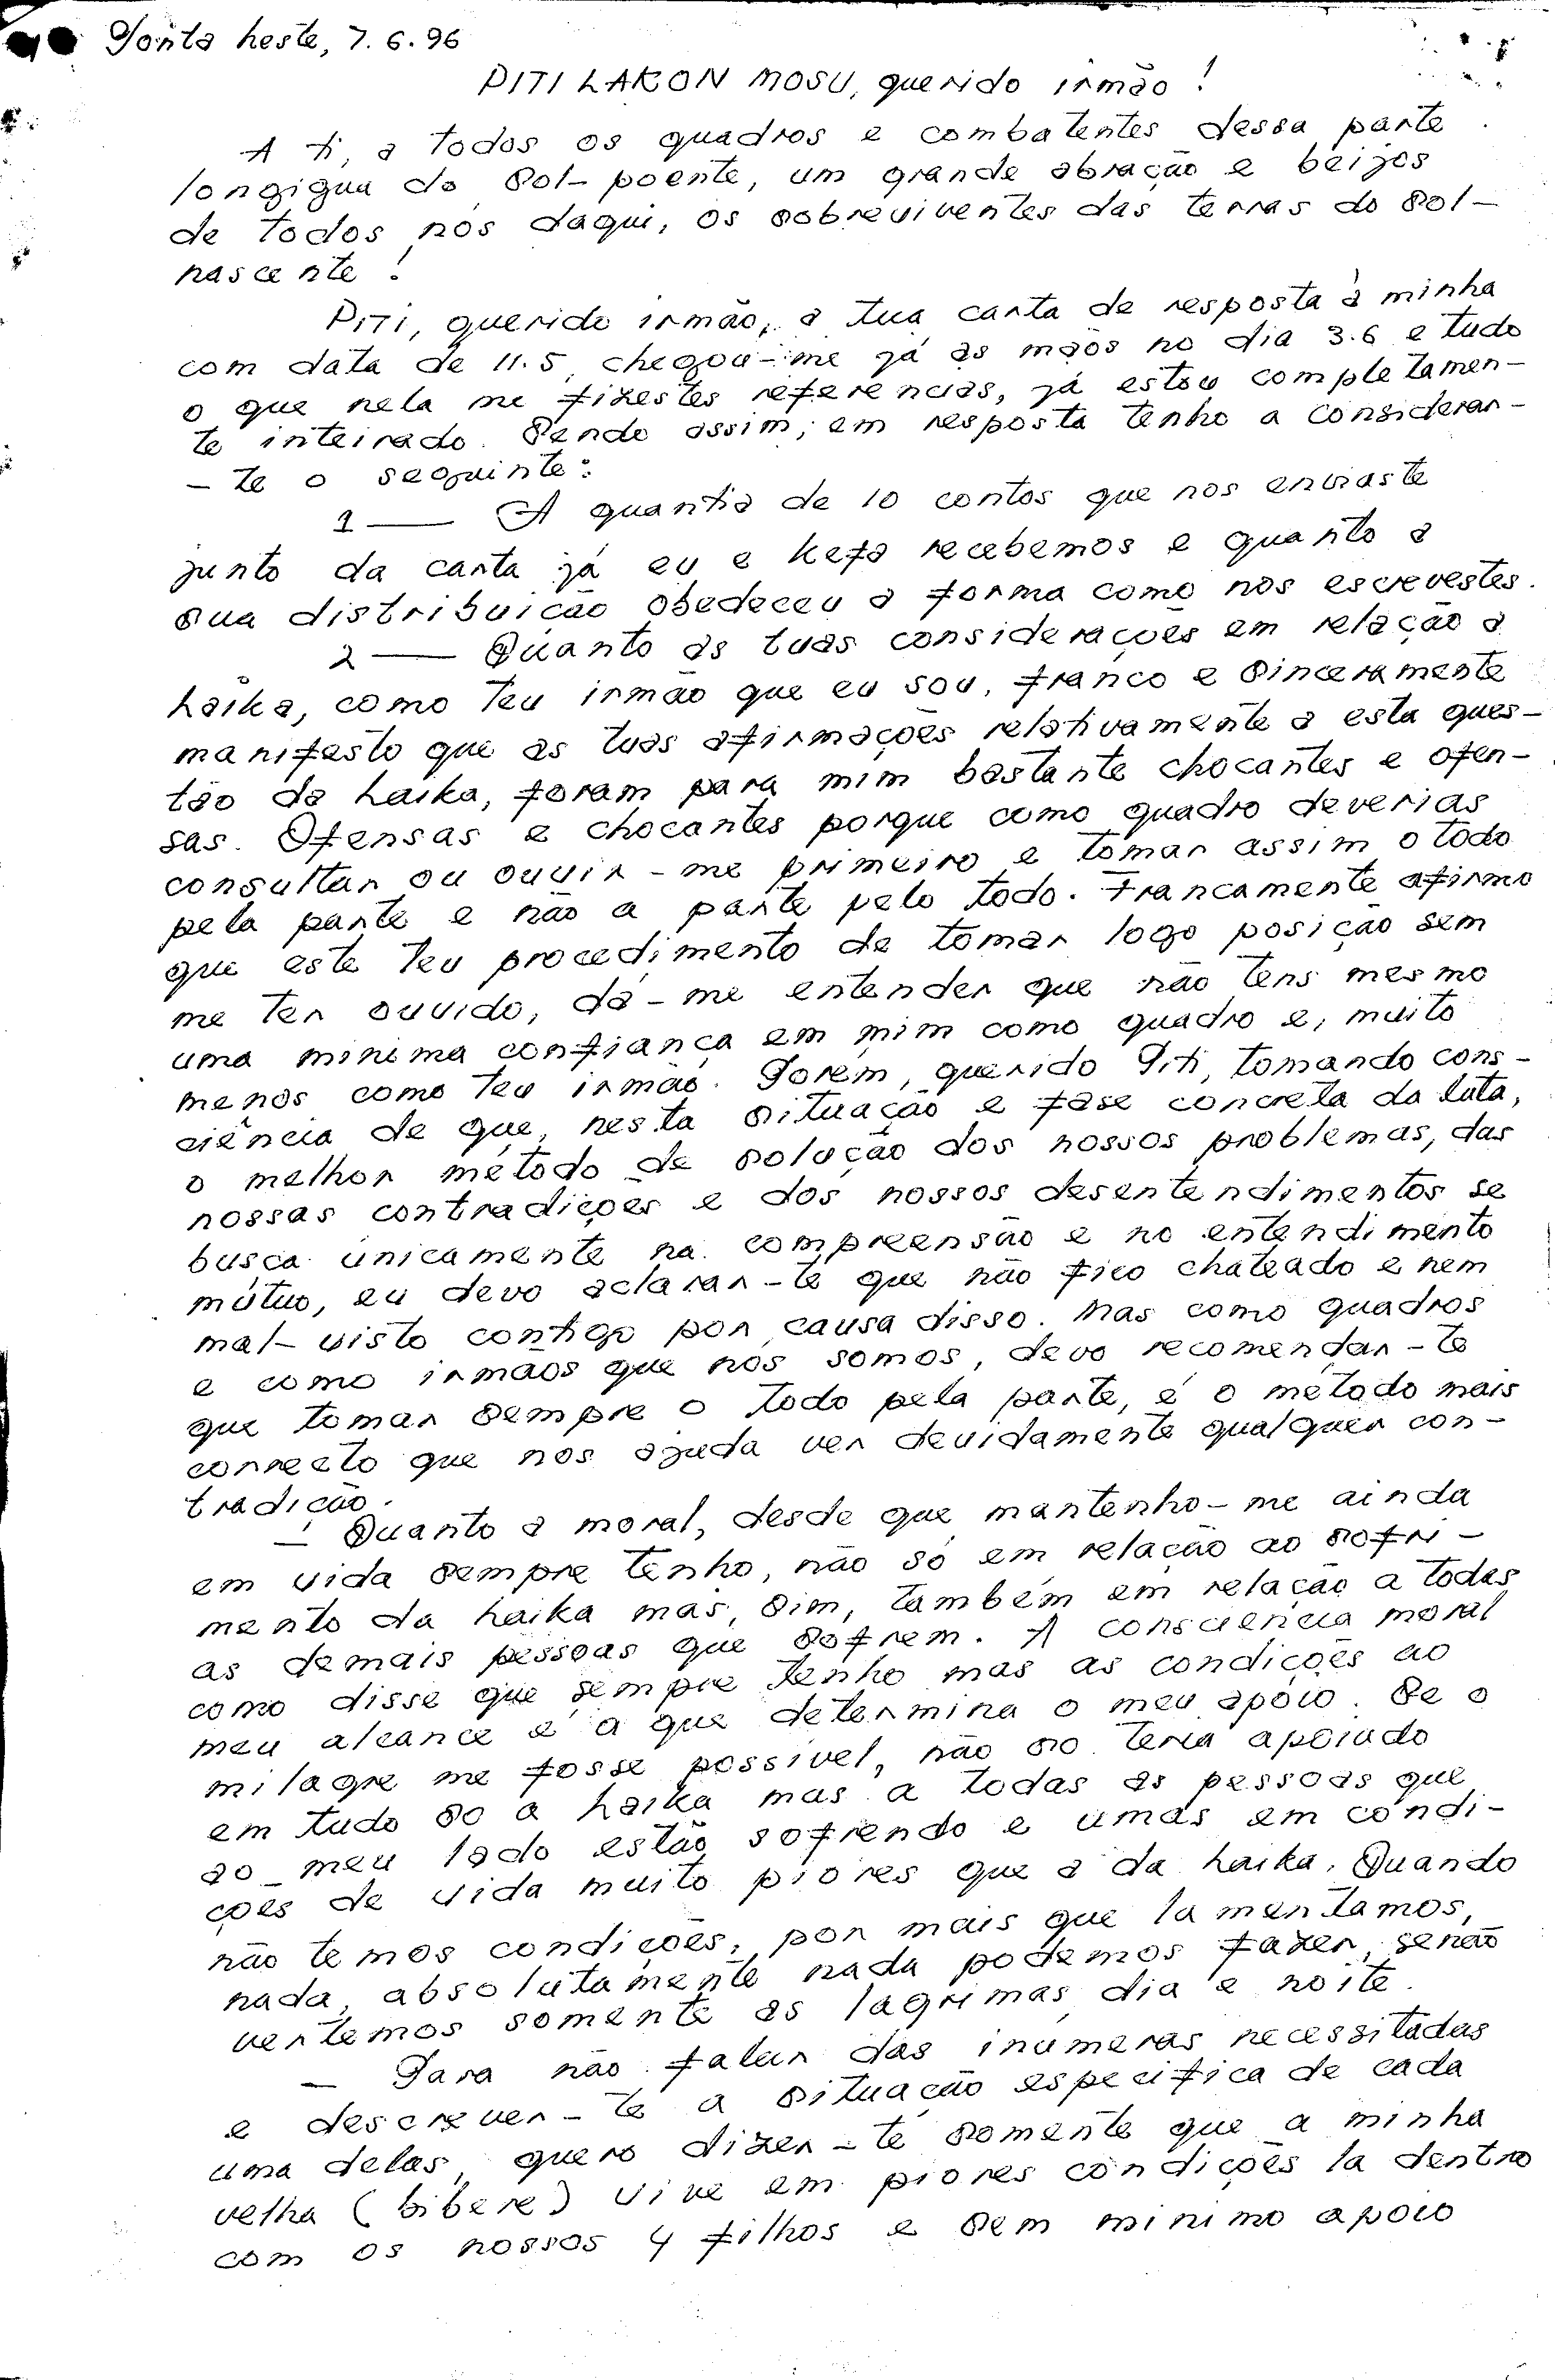 Ponta leste, 7.6.96
PITI LAKON MOSU, querido irmão!
A ti, a todos os quadros e combatentes dessa parte
longigua do Sol-poente, um grande abração e beijos
de todos nós daqui, os sobreviventes das terras do Sol-
nascente!
Piti, querido irmão, a tua carta de resposta à minha
com data de 11.5, chegou-me já às mãos no dia 3.6 e tudo
o que nela me fizestes referencias, já estou completamen-
te inteirado. Sendo assim, em resposta tenho a considerar-
-te o seguinte:
1 — A quantia de 10 contos que nos enviaste
junto da carta já eu e Kefa recebemos e quanto a
sua distribuicão obedeceu a forma como nos escrevestes.
2 — Quanto as tuas considerações em relação a
Laika, como teu irmão que eu sou, franco e sinceramente
manifesto que as tuas afirmações relativamente a esta ques-
tão da Laika, foram para mim bastante chocantes e ofen-
sas. Ofensas e chocantes porque como quadro deverias
consultar ou ouvir-me primeiro e tomar assim o todo
pela parte e não a parte pelo todo. Francamente afirmo
que este teu procedimento de tomar logo posição sem
me ter ouvido, dá-me entender que não tens mesmo
uma minima confiança em mim como quadro e, muito
menos como teu irmão. Porém, querido Piti, tomando cons-
ciência de que, nesta situação e fase concreta da luta,
o melhor método de solução dos nossos problemas, das
nossas contradições e dos nossos desentendimentos se
busca únicamente na compreensão e no entendimento
mútuo, eu devo aclarar-te que não fico chateado e nem
mal-visto contigo por causa disso. Mas como quadros
e como irmãos que nós somos, devo recomendar-te
que tomar sempre o todo pela parte, é o método mais
correcto que nos ajuda ver devidamente qualquer con-
tradição.
— Quanto a moral, desde que mantenho-me ainda
em vida sempre tenho, não só em relação ao sofri-
mento da Laika mas, sim, também em relação a todas
as demais pessoas que sofrem. A consciência moral
como disse que sempre tenho mas as condições ao
meu alcance é a que determina o meu apoio. Se o
milagre me fosse possível, não só teria apoiado
em tudo só a Laika mas a todas as pessoas que
ao meu lado estão sofrendo e umas em condi-
ções de vida muito piores que a da Laika. Quando
não temos condições, por mais que lamentamos,
nada, absolutamente nada podemos fazer, senão
vertemos somente as lagrimas dia e noite.
— Para não falar das inúmeras necessitadas
e descrever-te a situação especifica de cada
uma delas, quero dizer-te somente que a minha
velha (bibere) vive em piores condições la dentro
com os nossos 4 filhos e sem minimo apoio